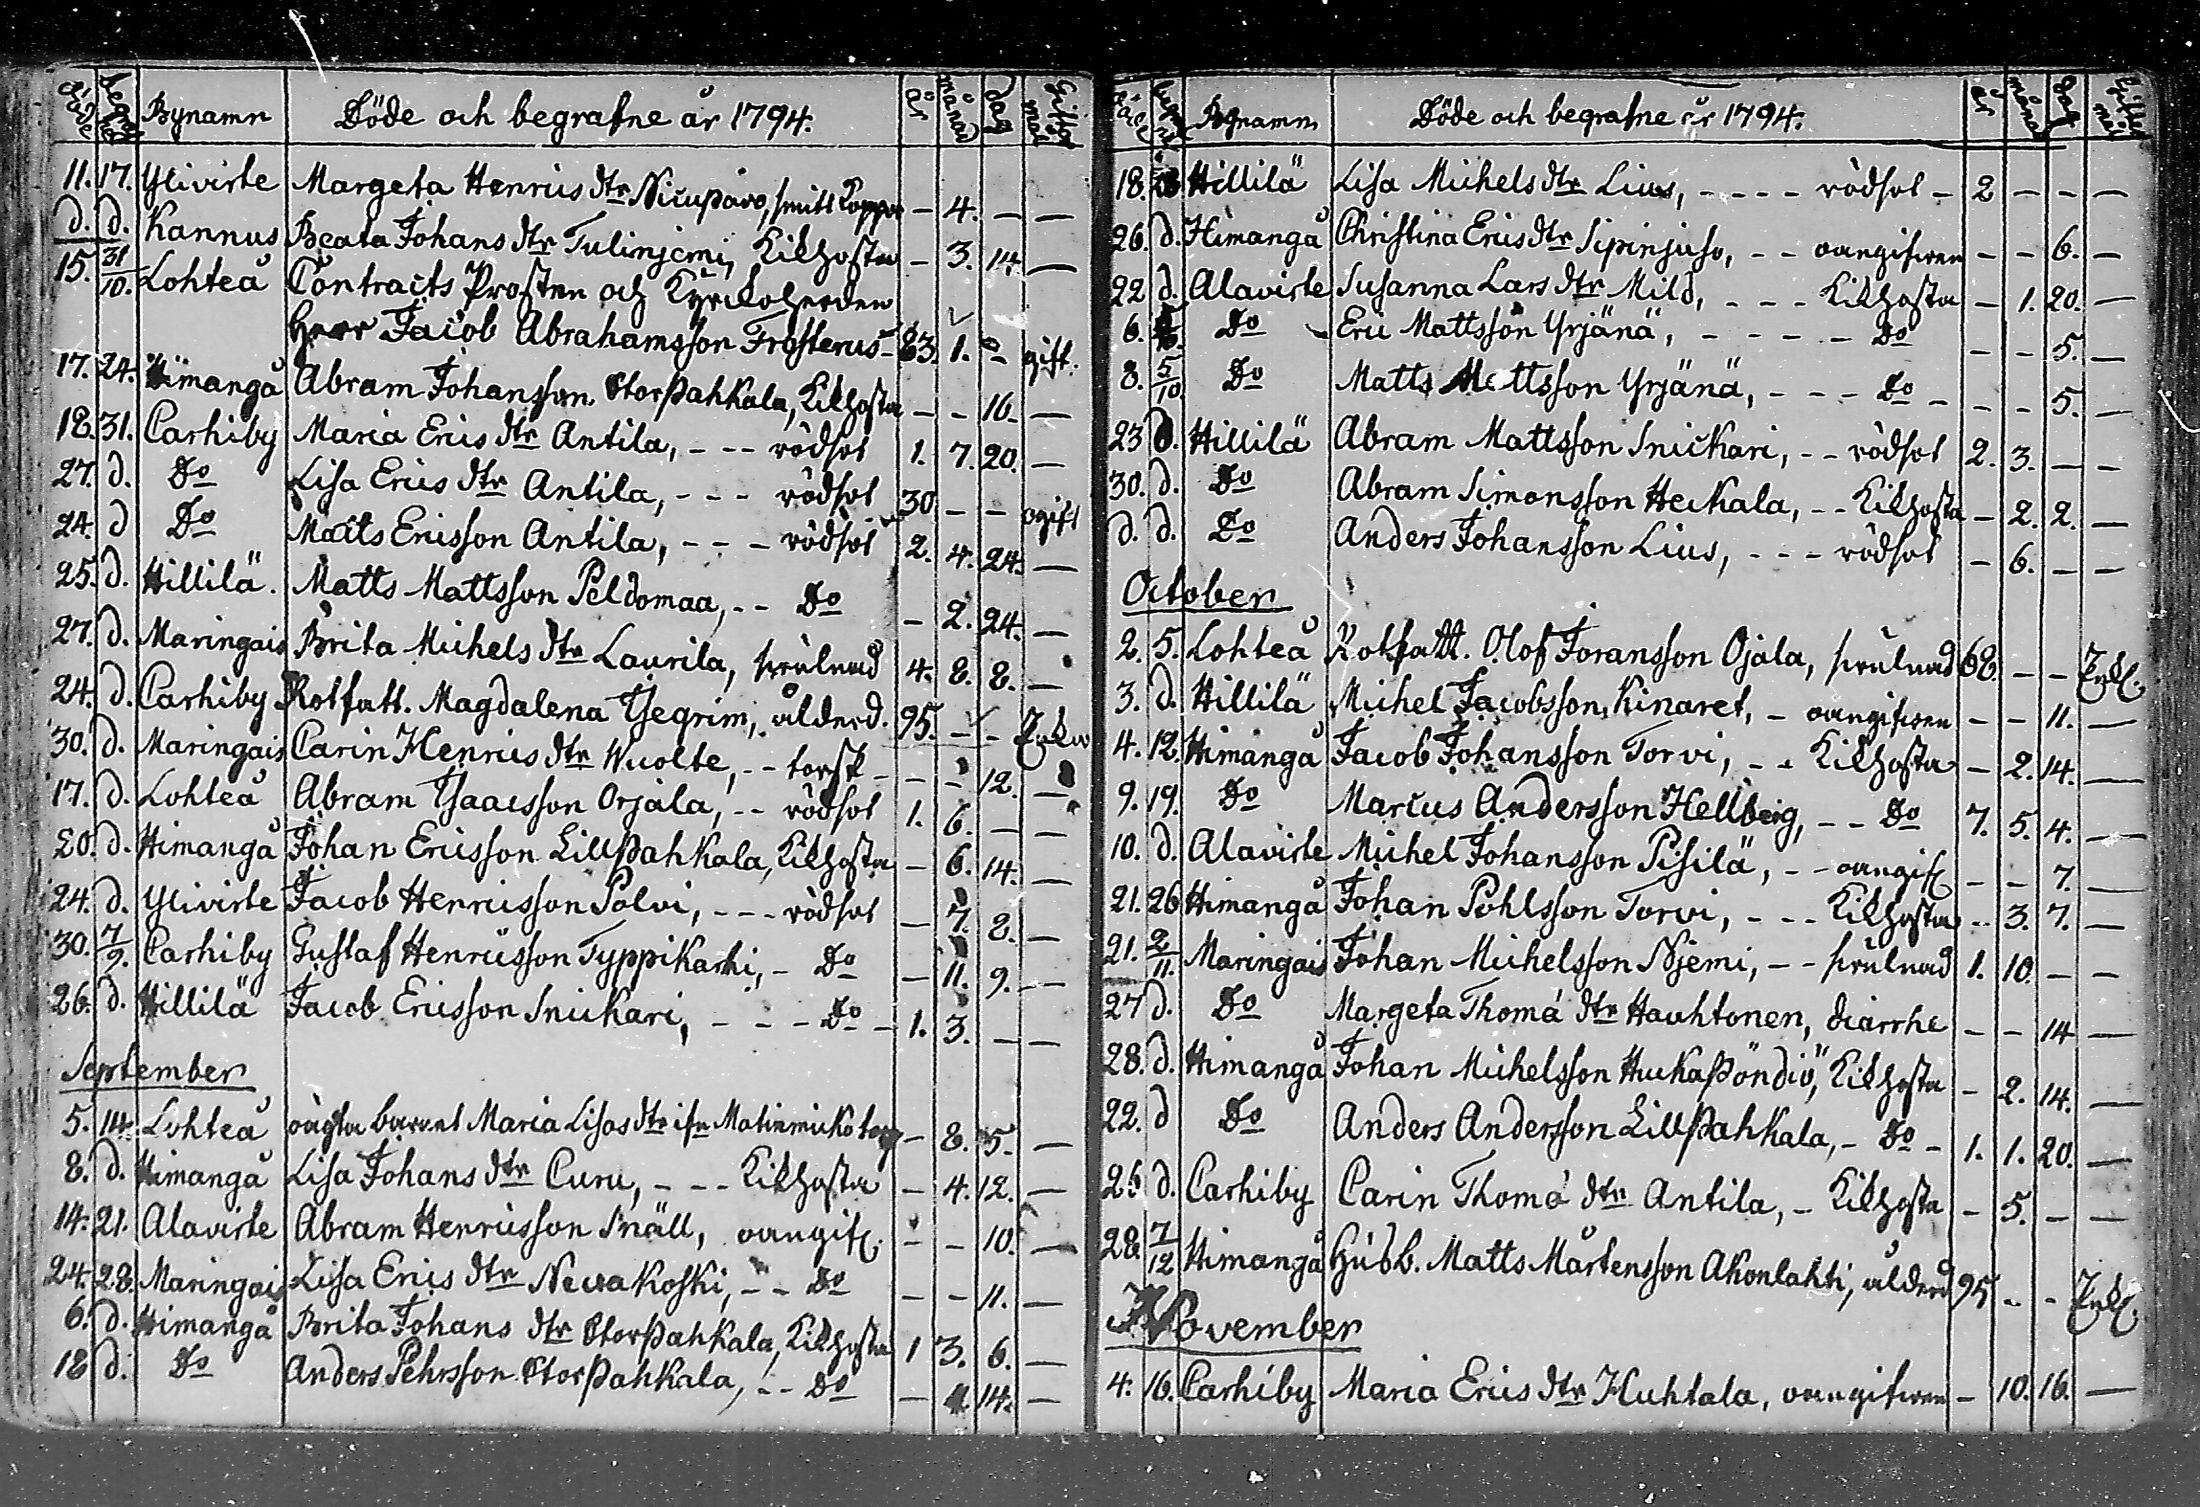 död begrafne Bynamn Döde och begrafne år 1794. år månad dag Giftermål
11. 17. Ylivirte Margeta Henrics dtr Nicupavo, smitt Koppor – 4. – –
d. d. Kannus Beata Johans dtr Tulinjemi, Kikhosta – 3. 14. –
15. 31/10. Lohteå Contracts Prosten och Kyrckoherden
Herr Jacob Abrahamsson Frosterus – 83. 1. – gift.
17. 24. Himangå Abram Johansson Storpahkala, Kikhosta – – 16. –
18. 31. Carhiby Maria Erics dtr Antila, – – – rödsot 1. 7. 20. –
27. d. Do Lisa Erics dtr Antila, – – – rödsot 30 – – ogift
24. d Do Matts Ericsson Antila, – – – rödsot 2. 4. 24. –
25. d. Hillilä. Matts Mattsson Peldomaa, – – Do – 2. 24. –
27. d. Maringais Brita Michels dtr Laurila, svulnad 4. 8. 8. –
24. d. Carhiby Rotfatt. Magdalena Ysegrim, ålderd. 95. – – Enka
30. d. Maringais Carin Henrics dtr Wuolte, – – torsk – – – 12. –
17. d. Lohteå Abram Ysaacsson Orjala, – – rödsot 1. 6. – –
20. d. Himangå Johan Ericsson Lillpahkala, Kikhosta – 6. 14. –
24. d. Ylivirte Jacob Henricsson Polvi, – – – rödsot – 7. 2. –
30. 7/9. Carhiby Gustaf Henricsson Typpikarhi, – Do – 11. 9. –
26. d. Hillilä Jacob Ericsson Snickari, – – – Do – 1. 3. – –
September
5. 14. Lohteå oägta barnet Maria Lisas dtr ifn Matinmicko torp – 8. 5. –
8. d. Himangå Lisa Johans dtr Curu, – – – Kikhosta – 4. 12. –
14. 21. Alavirte Abram Henricsson Snäll, oangif. – – 10. –
24. 28. Maringais Lisa Erics dtr Nevakoski, – – Do – – 11. –
6. d. Himangå Brita Johans dtr Storpahkala, Kikhosta 1 3. 6. –
18 d. Do Anders Pehrsson Storpahkala, – – Do – 14. –
Bynamn Döde och begrafne år 1794. år månad dag Giftermål
18. Hillilä Lisa Michels dtr Lius, – – – – rödsot – 2 – – –
26. d. Himangå Christina Erics dtr Sipinjuso, – – oangifwen – – 6. –
22 d. Alavirte Susanna Lars dtr Mild, – – – Kikhosta – 1. 20. –
6. Do – Eric Mattsson Yrjänä, – – – – – Do – – 5. –
8. 5/10 Do Matts Mattsson Yrjänä, – – – Do – – – 5. –
23 d. Hillilä Abram Mattsson Snickari, – – rödsot 2. 3. – –
30. d. Do Abram Simonsson Heckala, – – Kikhosta – 2. 2. –
d. d. Do Anders Johansson Lius, – – – rödsot – 6. – –
October
2. 5. Lohteå Rotfatt. Olof Joransson Ojala, svulnad 68. – – Enkl.
3. d. Hillilä Michel Jacobsson Kinaret, – oangifwen – – 11. –
4. 12. Himangå Jacob Johansson Torvi, – – Kikhosta – 2. 14. –
9. 19. Do Marcus Andersson Hellberg, – – Do 7. 5. 4. –
10. d. Alavirte Michel Johansson Pisilä, – – oangif. – – 7. –
21. 26 Himangå Johan Pohlsson Torvi, – – – Kikhosta – 3. 7. –
21. 2/11. Maringais Johan Michelsson Njemi, – – svulnad 1. 10. – –
27 d. Do Margeta Thomæ dtr Hauhtonen, diarrhe – – 14 –
28. d. Himangå Johan Michelsson Huckapöndiö, Kikhosta – 2. 14. –
22. d Do Anders Andersson Lillpahkala, – Do – 1. 1. 20. –
26 d. Carhiby Carin Thomæ dtr Antila, – Kikhosta – 5. – –
28. 7/12 Himangå Husb. Matts Mårtensson Akonlahti, ålderd 95 – – Enkl.
November
4. 16. Carhiby Maria Erics dtr Huhtala, oangifwen – 10. 16. –